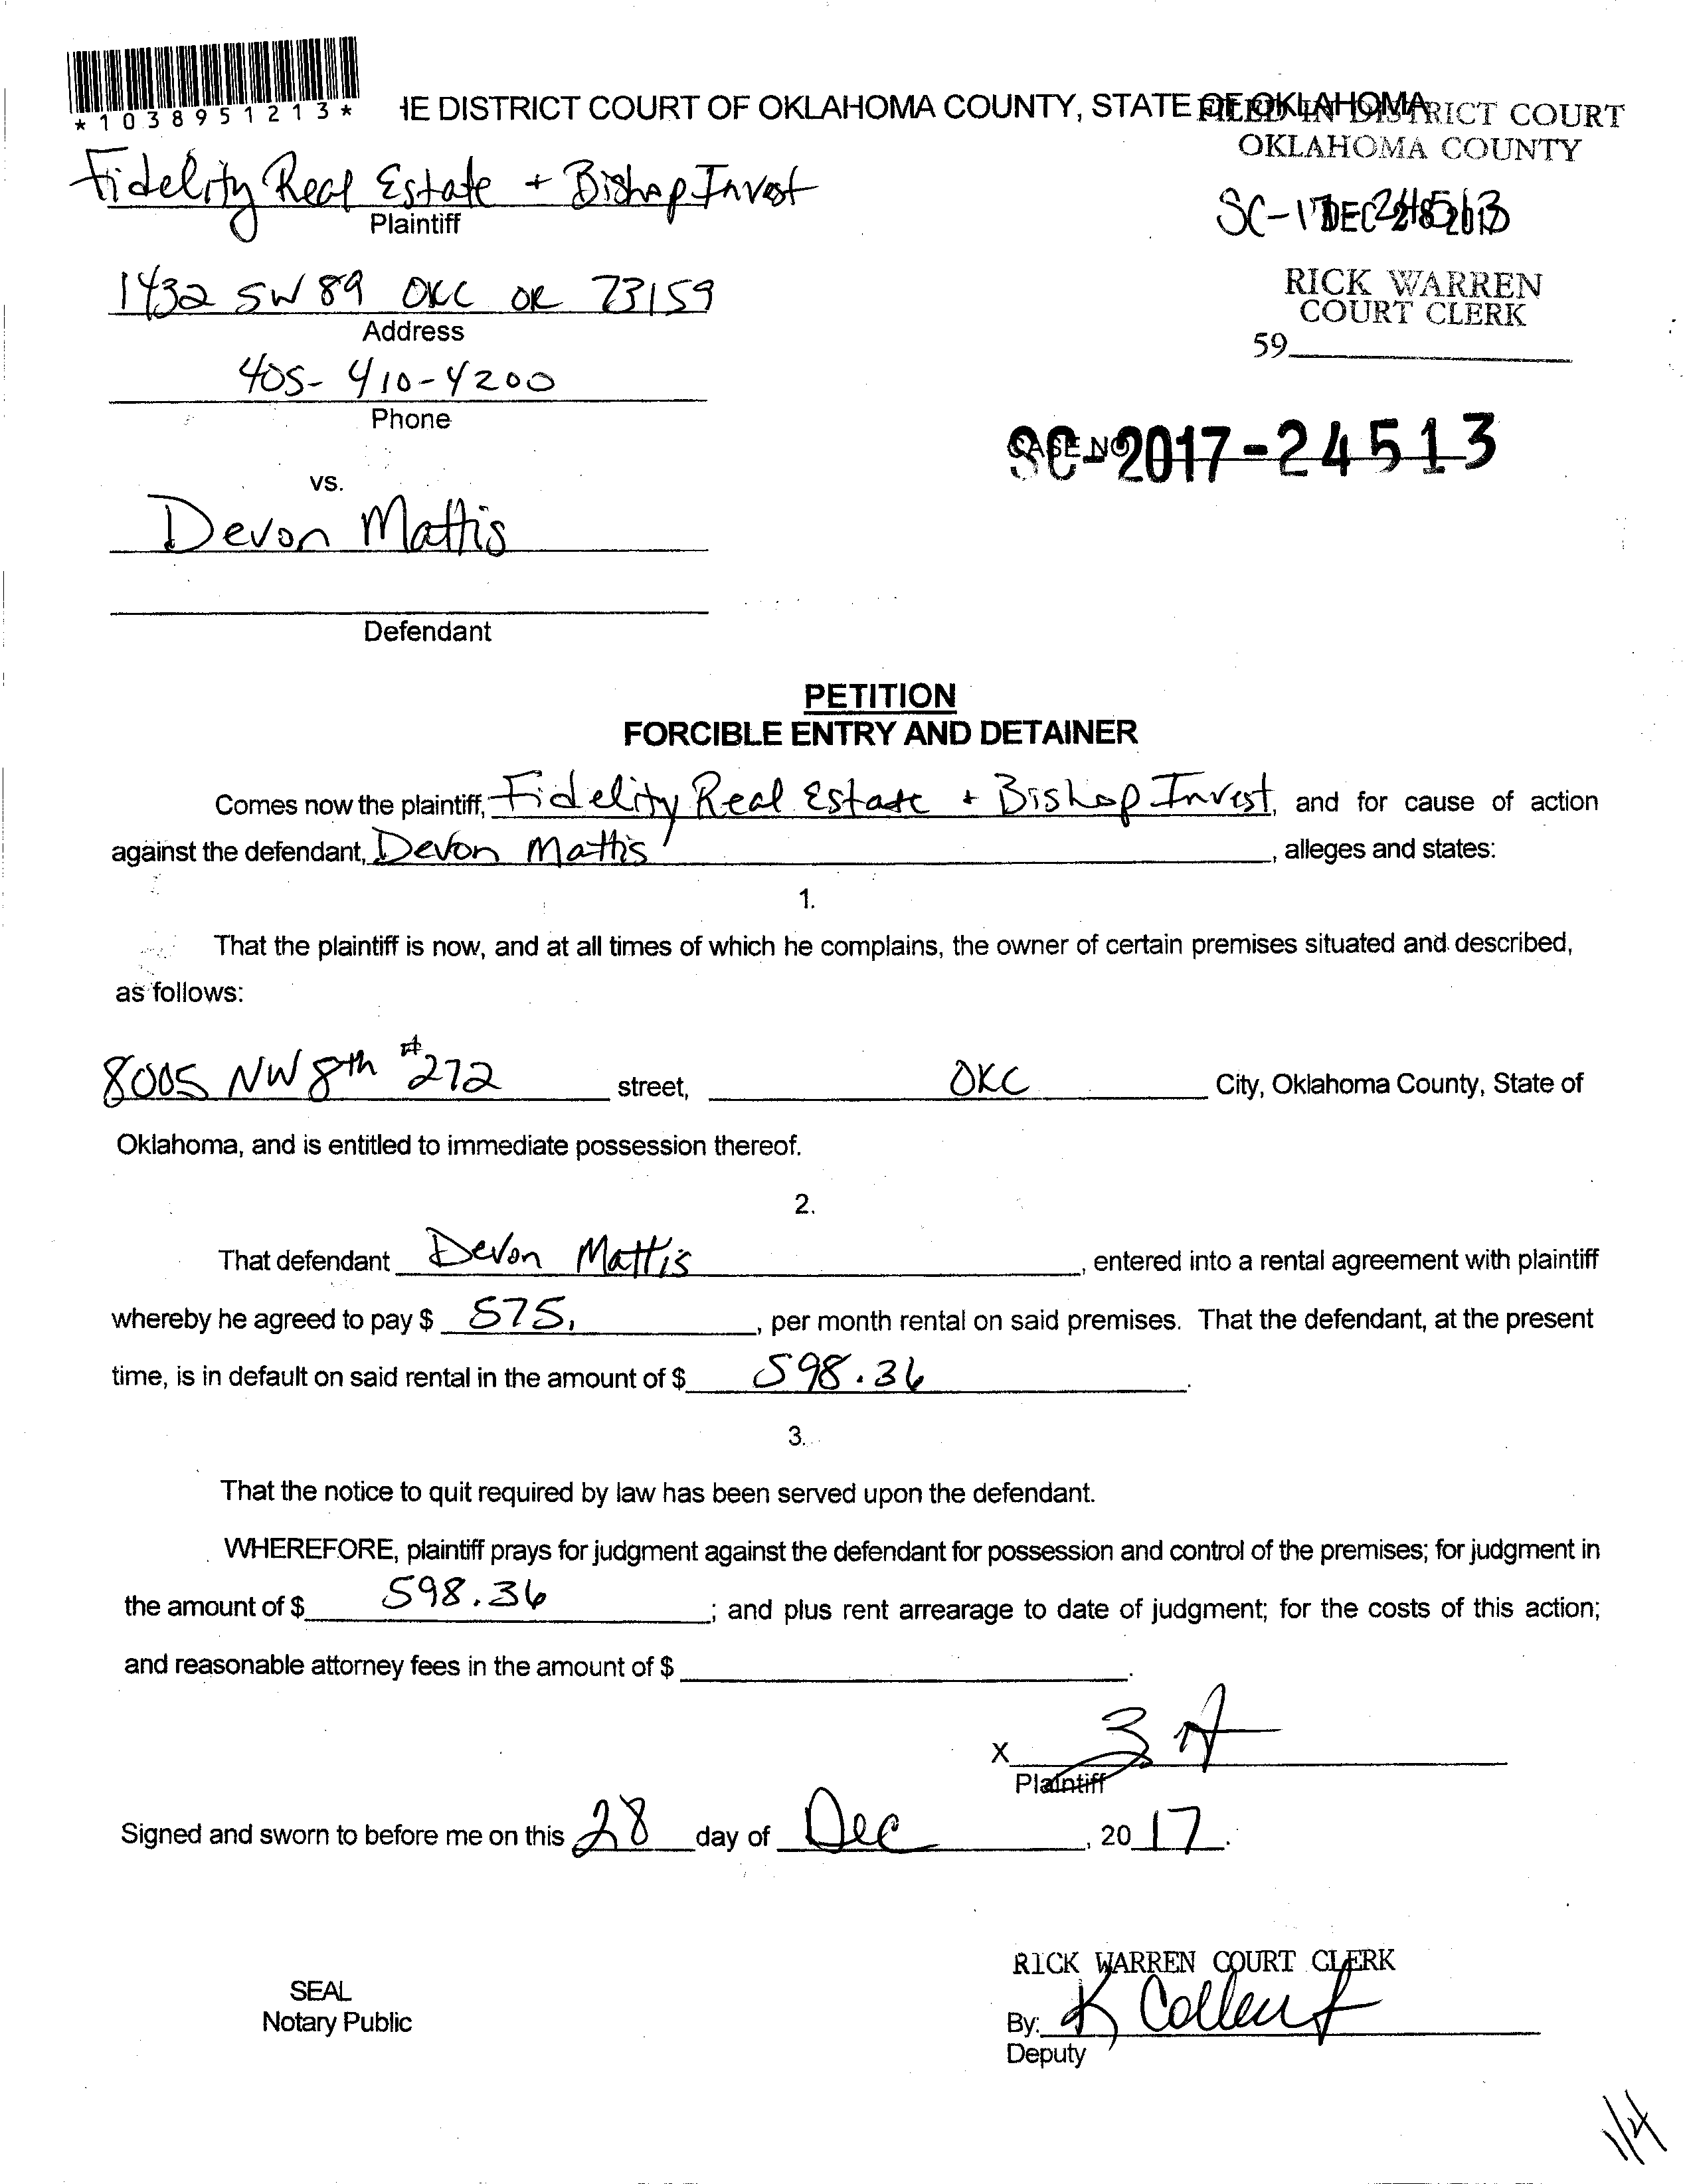 *1038951213*
IE DISTRICT COURT OF OKLAHOMA COUNTY, STATE OF OKLAHOMA
FILED IN DISTRICT COURT
OKLAHOMA COUNTY
Fidelity Real Estate + Bishop Invest
Plaintiff
SC-17-24513
DEC 28 2017
1432 SW 89 OKC OK 73159
Address
RICK WARREN
COURT CLERK
59
405-410-4200
Phone
CASE NO
SC-2017-24513
vs.
Devon Mattis
Defendant
PETITION
FORCIBLE ENTRY AND DETAINER
Comes now the plaintiff, Fidelity Real Estate + Bishop Invest, and for cause of action
against the defendant, Devon Mattis, alleges and states:
1.
That the plaintiff is now, and at all times of which he complains, the owner of certain premises situated and described,
as follows:
8005 NW 8th #272 street, OKC City, Oklahoma County, State of
Oklahoma, and is entitled to immediate possession thereof.
2.
That defendant Devon Mattis, entered into a rental agreement with plaintiff
whereby he agreed to pay $ 575, per month rental on said premises. That the defendant, at the present
time, is in default on said rental in the amount of $ 598.36.
3.
That the notice to quit required by law has been served upon the defendant.
WHEREFORE, plaintiff prays for judgment against the defendant for possession and control of the premises; for judgment in
the amount of $ 598.36; and plus rent arrearage to date of judgment; for the costs of this action;
and reasonable attorney fees in the amount of $ .
X
Plaintiff
Signed and sworn to before me on this 28 day of Dec, 2017.
RICK WARREN COURT CLERK
SEAL
Notary Public
By: K
Deputy
1/4